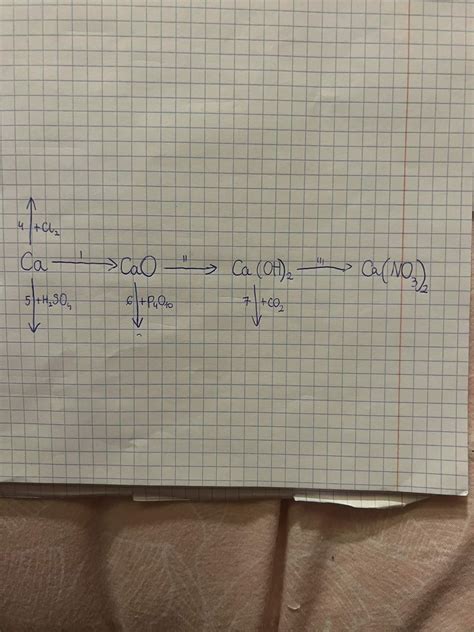 4 +Cl₂
Ca I CaO II Ca(OH)₂ III Ca(NO₃)₂
5 +H₂SO₄ 6 +P₄O₁₀ 7 +CO₂